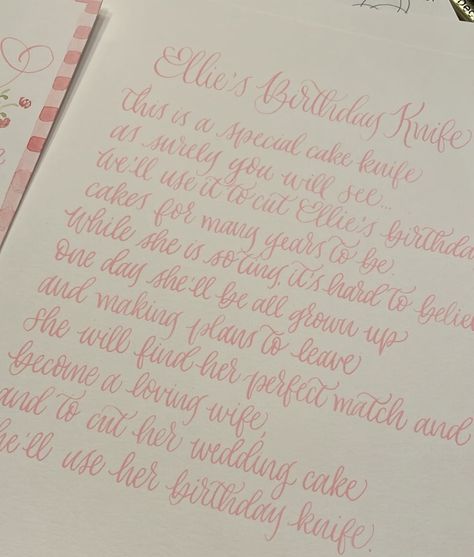 Ellie's Birthday Knife
This is a special cake knife
as surely you will see...
We'll use it to cut Ellie's birthda
cakes for many years to be.
While she is so tiny, it's hard to believ
one day she'll be all grown up
and making plans to leave
She will find her perfect match and
become a loving wife,
and to cut her wedding cake
he'll use her birthday knife.